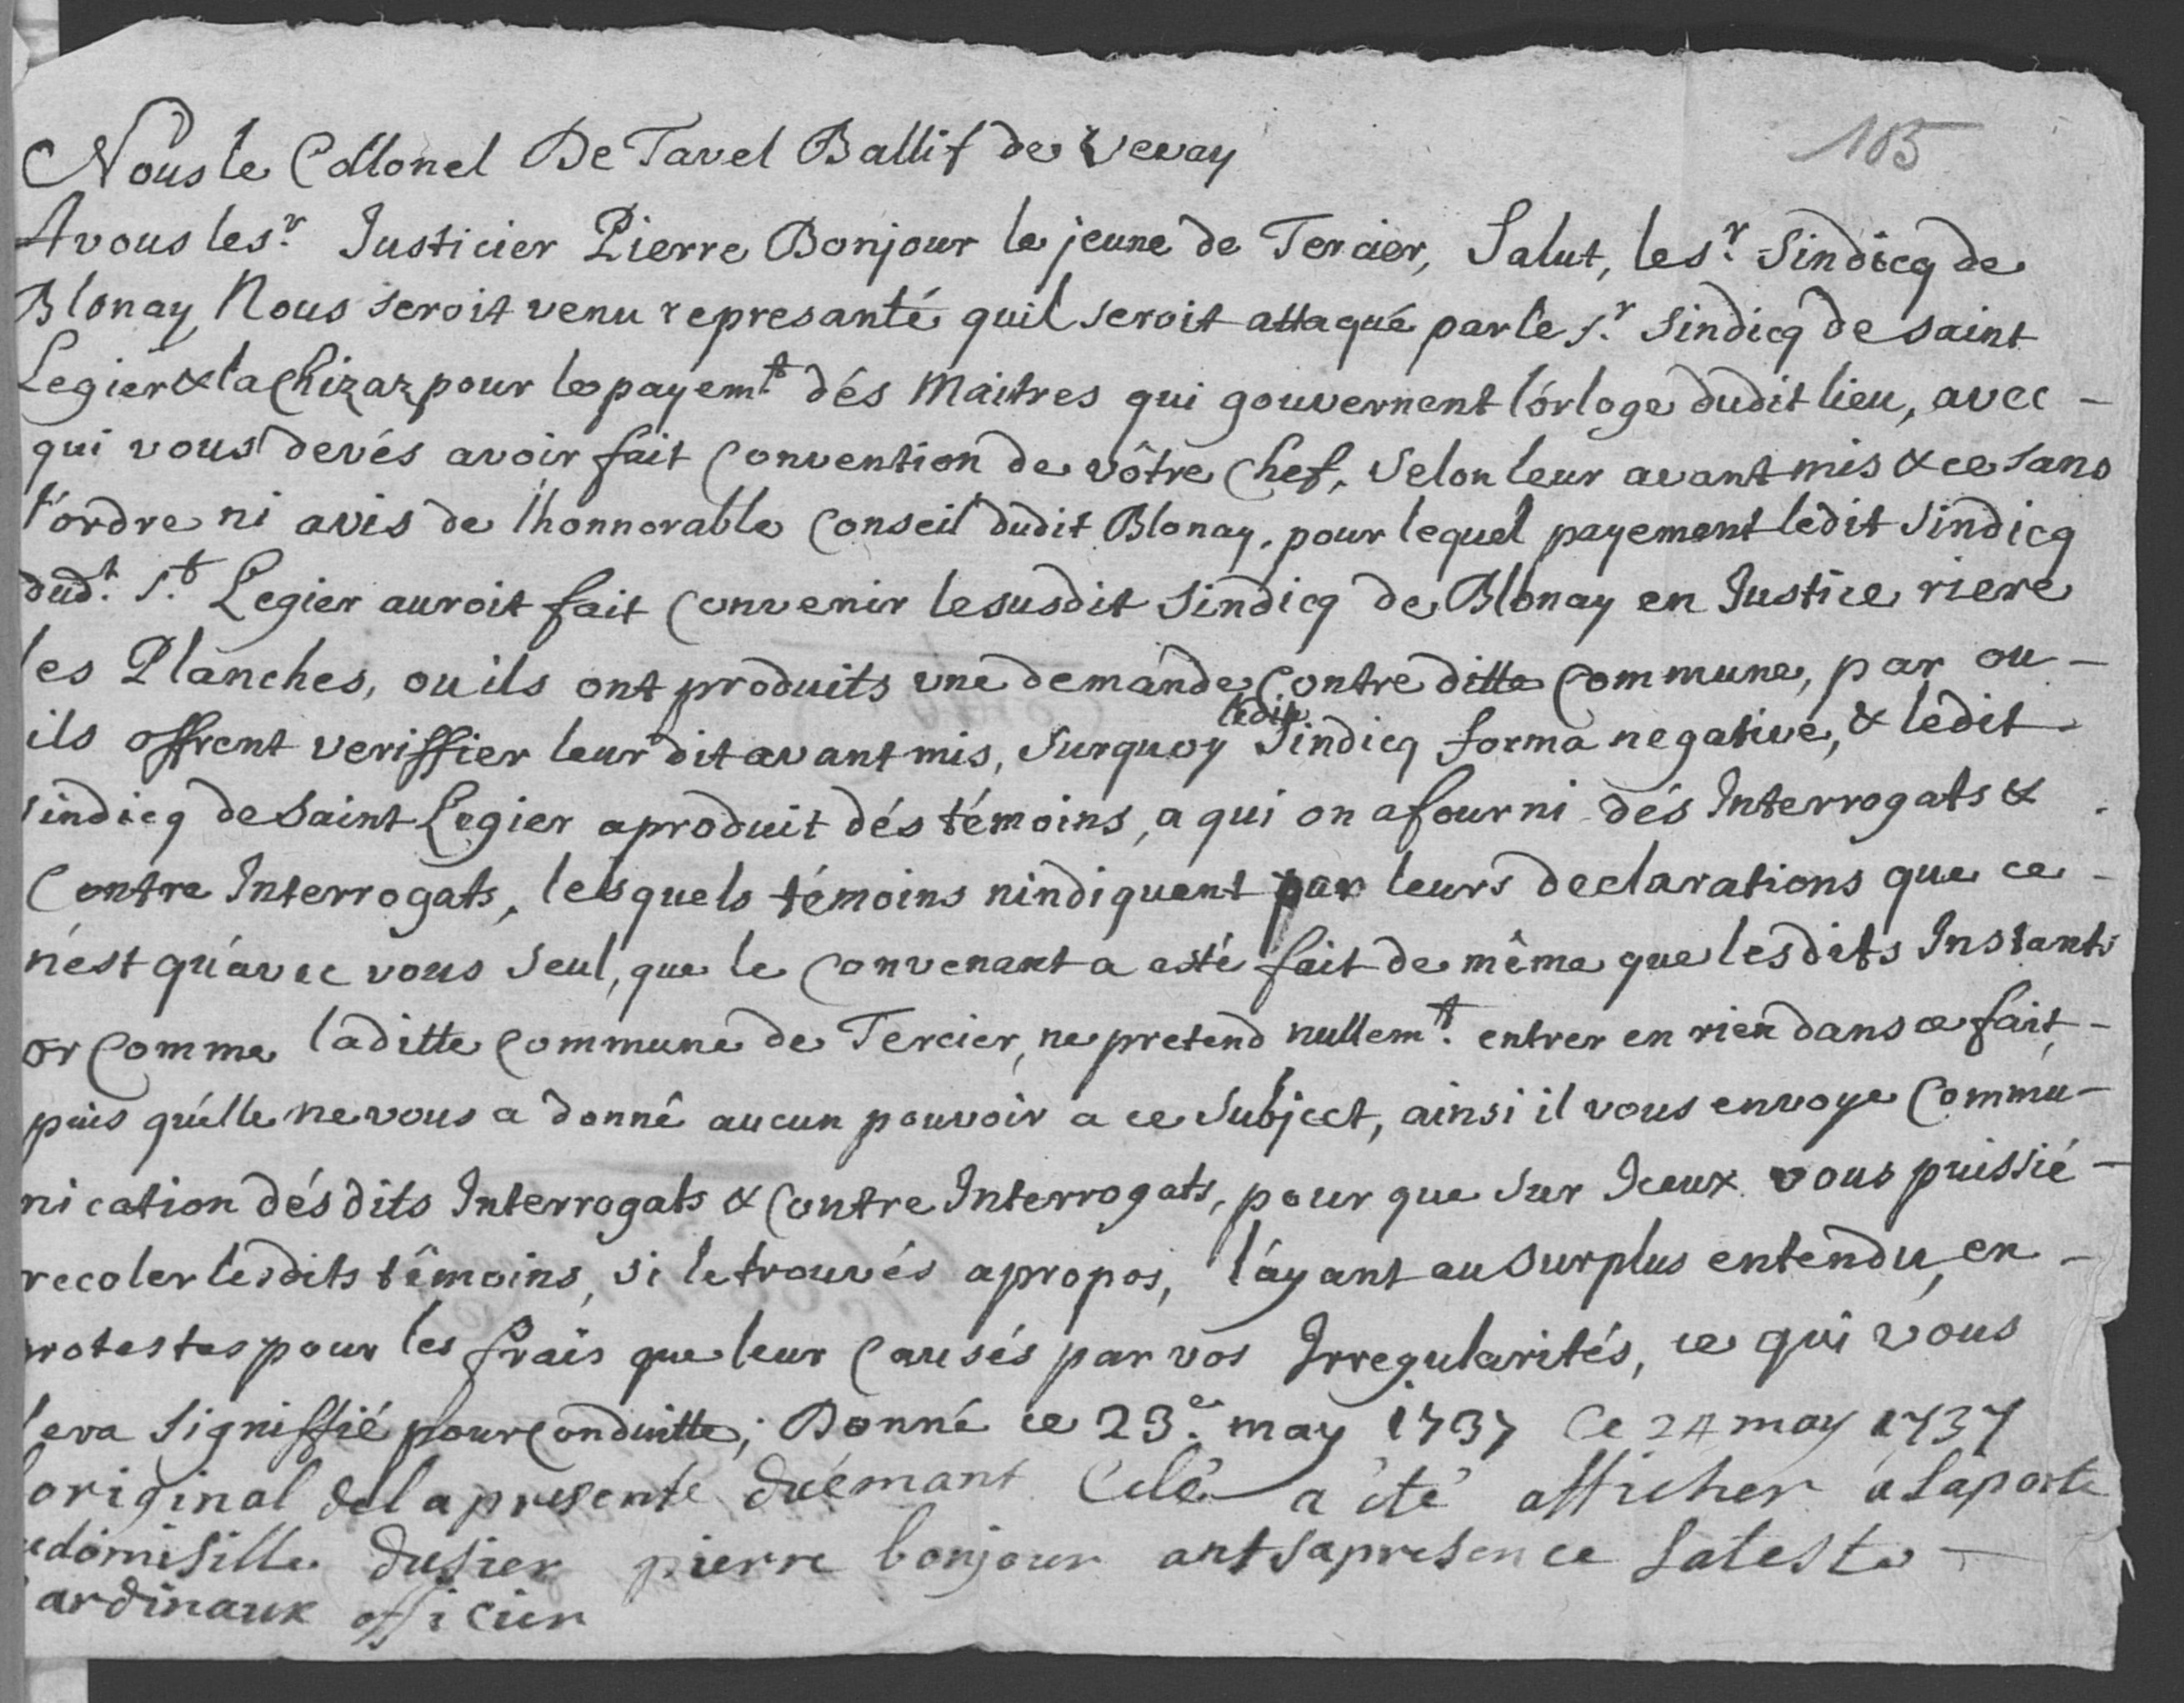 185
Nous le Collonel De Tavel Ballif de Vevay
A vous le s.r Justicier Pierre Bonjour le jeune de Tercier, Salut, le s.r Sindicq de
Blonay Nous seroit venu represanté quil seroit attaqué par le s.r Sindicq de saint
Legier & la Chizaz pour le payem.t dés Maitres qui gouvernent l'órloge dudit lieu, avec -
qui vous devés avoir fait Convention de vôtre Chef, Selon leur avant mis & ce sans
l'ordre ni avis de l'honnorable Conseil dudit Blonay, pour lequel payement ledit Sindicq
dud.t S.t Legier auroit fait Convenir le susdit Sindicq de Blonay en Justice riere
les Planches, ou ils ont produits une demande Contre ditte Commune, par ou -
ils offrent veriffier leur dit avant mis, Surquoy ledit Sindicq forma negative, & ledit
Sindicq de Saint Legier a produit dés témoins, a qui on a fourni dés Interrogats &
Contre Interrogats, lesquels témoins nindiquent par leurs declarations que ce -
n'ést qu'ávec vous Seul, que le Convenant a esté fait de même que lesdits Instants
or Comme laditte Commune de Tercier, ne pretend nullem.t entrer en rien dans ce fait, -
puis qu'élle ne vous a donné aucun pouvoir a ce Subject, ainsi il vous envoye Commu -
nication désdits Interrogats & Contre Interrogats, pour que Sur Iceux vous puissié -
recoler lesdits témoins, si le trouvés apropos, l'áyant au Surplus entendu, en -
protestes pour les frais que leur Causés par vos Irregularités, ce qui vous
Sera Signiffié pour Conduitte; Donné ce 23.e may 1737 Ce 24 may 1737
original de la presente duémant Celé a été afficher a la porte
domisille du sier pierre bonjour ant sa presence Lateste -
Cardinaux officier